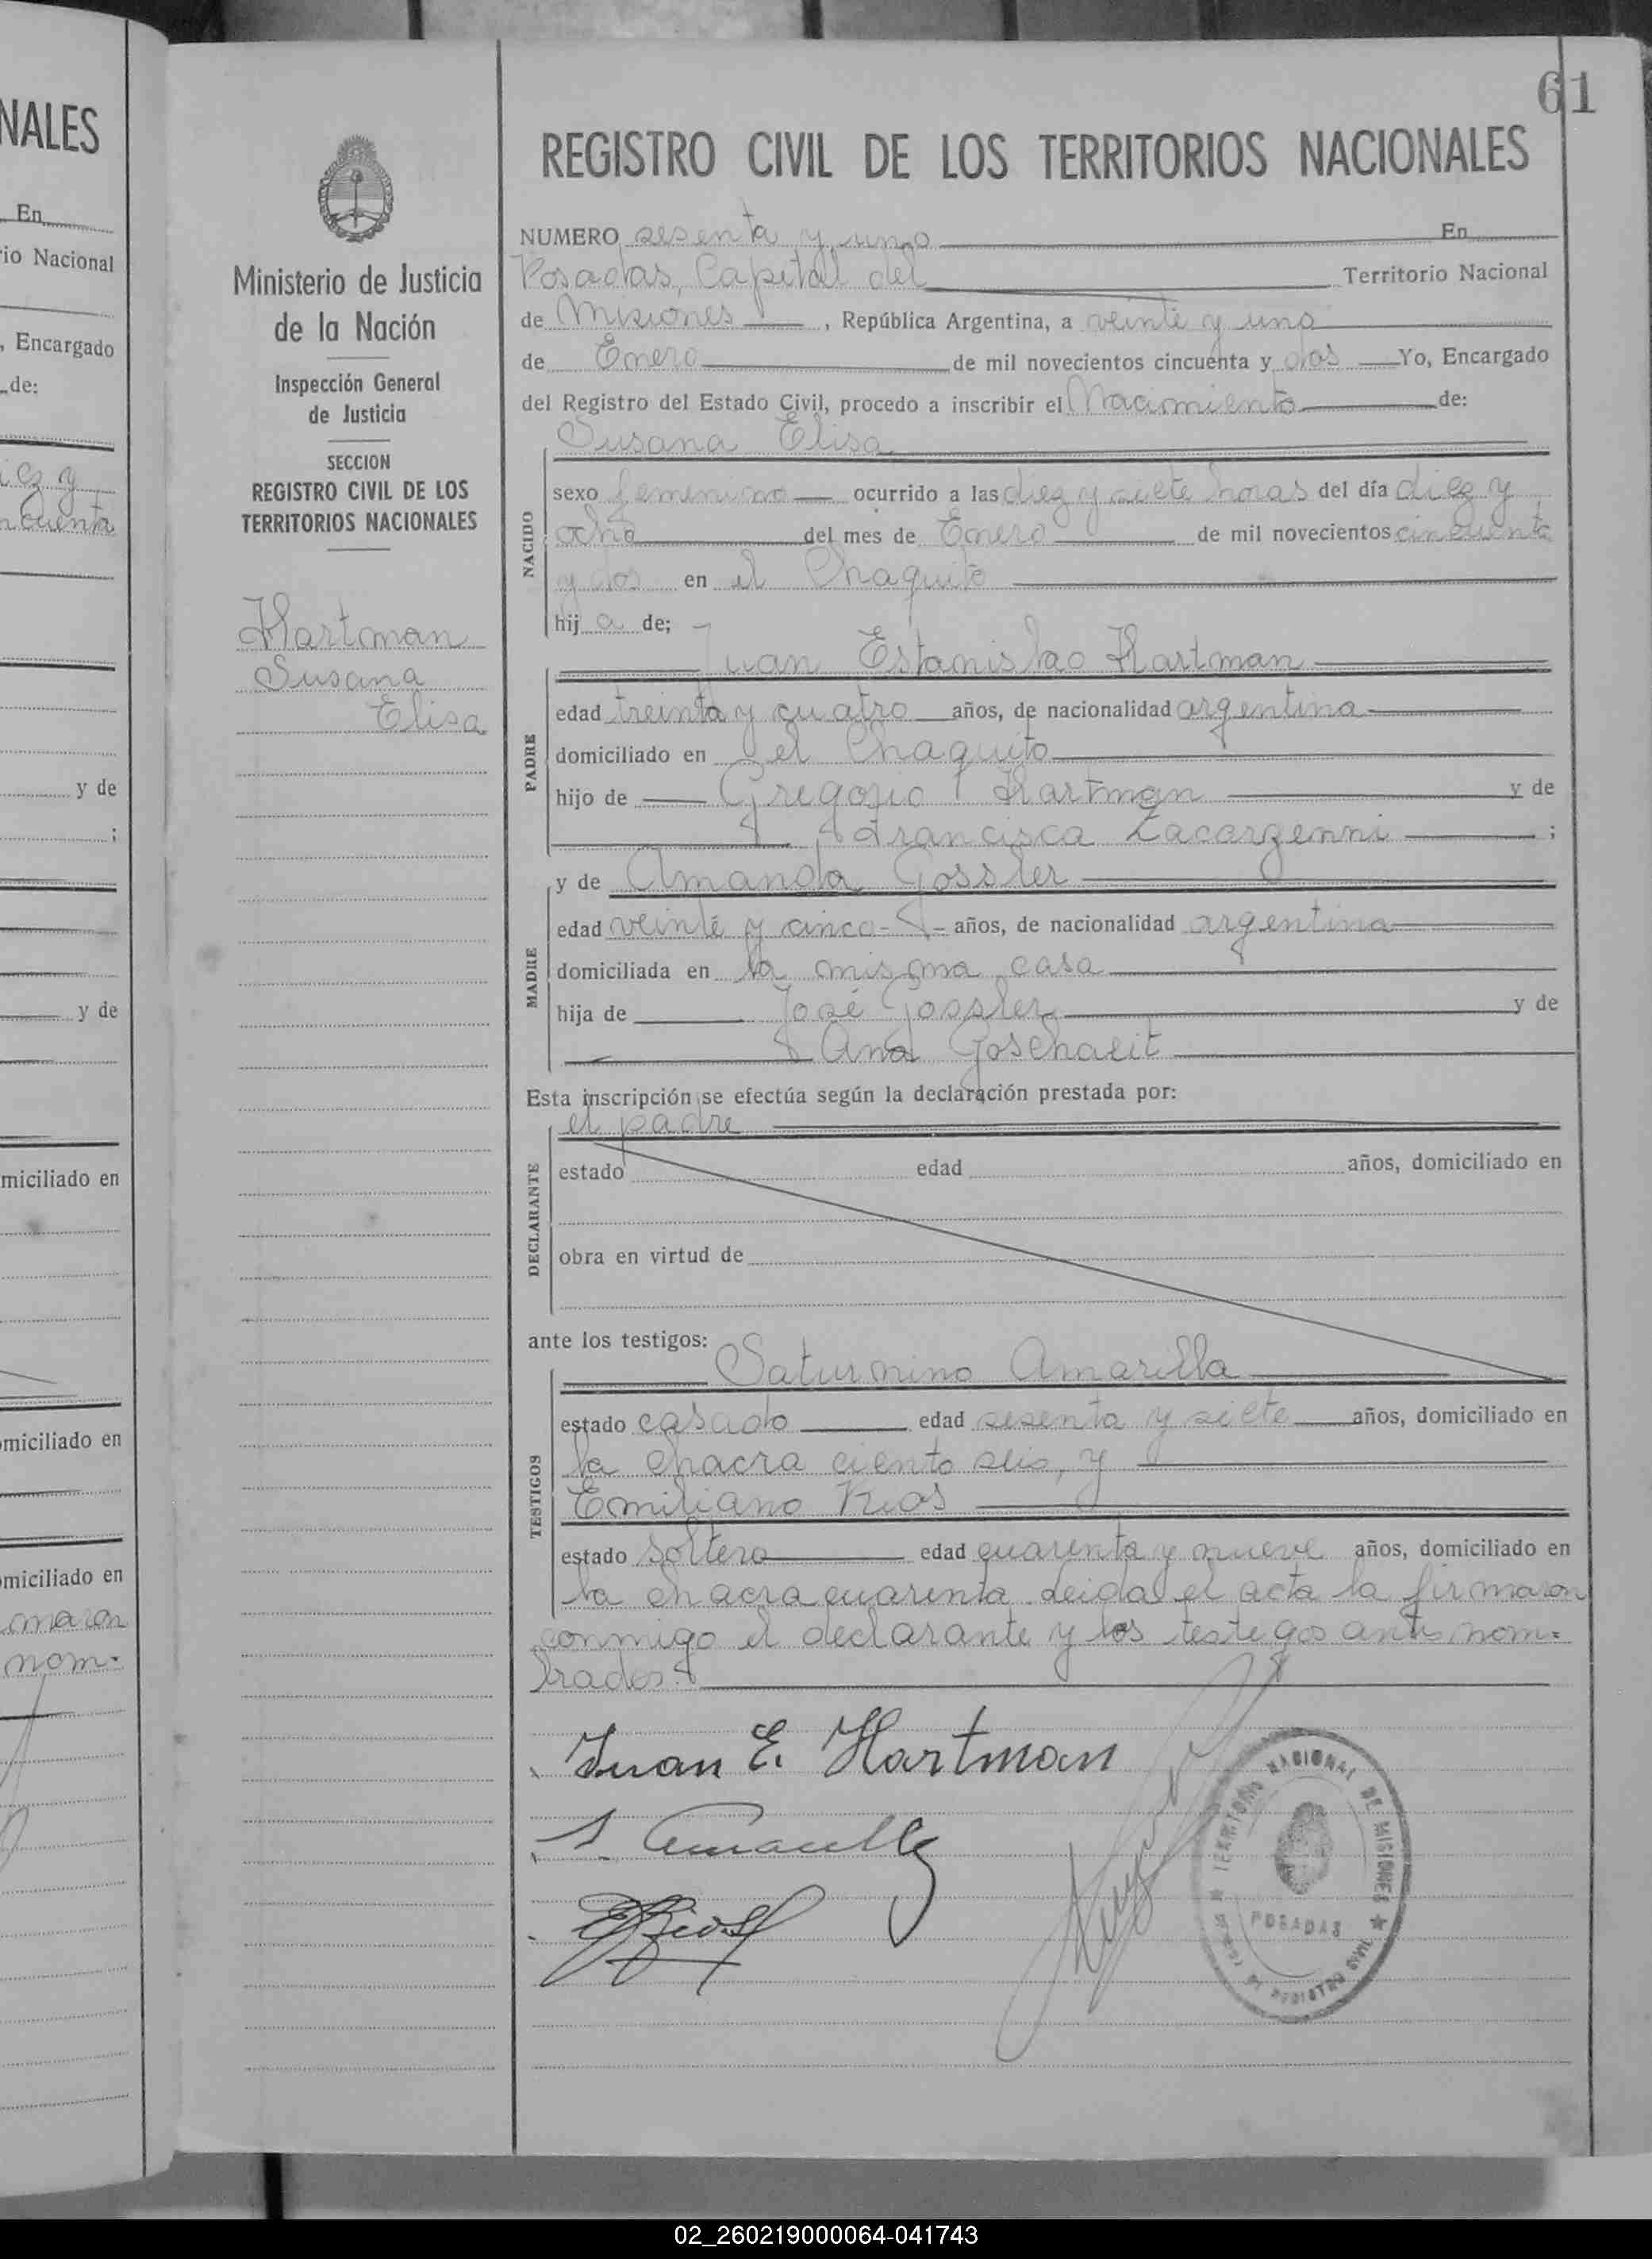 61
NALES
En
rio Nacional
, Encargado
de:
iez y
ncuenta
y de
;
y de
miciliado en
omiciliado en
omiciliado en
maron
nom=
Ministerio de Justicia
de la Nación
Inspección General
de Justicia
SECCION
REGISTRO CIVIL DE LOS
TERRITORIOS NACIONALES
Hartman
Susana
Elisa
REGISTRO CIVIL DE LOS TERRITORIOS NACIONALES
NUMERO sesenta y uno En
Posadas, Capital del Territorio Nacional
de Misiones , República Argentina, a veinte y uno
de Enero de mil novecientos cincuenta y dos Yo, Encargado
del Registro del Estado Civil, procedo a inscribir el Nacimiento de:
Susana Elisa
NACIDO
sexo femenino ocurrido a las diez y siete horas del día diez y
ocho del mes de Enero de mil novecientos cincuenta
y dos en el Chaquito
hij a de;
Juan Estanislao Hartman
PADRE
edad treinta y cuatro años, de nacionalidad argentina
domiciliado en el Chaquito
hijo de Gregorio Hartman y de
Francisca Zacargenni ;
y de Amanda Gossler
MADRE
edad veinte y cinco años, de nacionalidad argentina
domiciliada en la misma casa
hija de José Gossler y de
Ana Goschalit
Esta inscripción se efectúa según la declaración prestada por:
el padre
DECLARANTE
estado edad años, domiciliado en
obra en virtud de
ante los testigos:
Saturnino Amarilla
TESTIGOS
estado casado edad sesenta y siete años, domiciliado en
la chacra ciento seis, y
Emiliano Rios
estado soltero edad cuarenta y nueve años, domiciliado en
la chacra cuarenta. Leida el acta la firmaron
conmigo el declarante y los testigos antes nom=
brados.
Juan E. Hartman
S. Amarilla
E Rios
TERRITORIO NACIONAL DE MISIONES
POSADAS
REGISTRO CIVIL
02_260219000064-041743